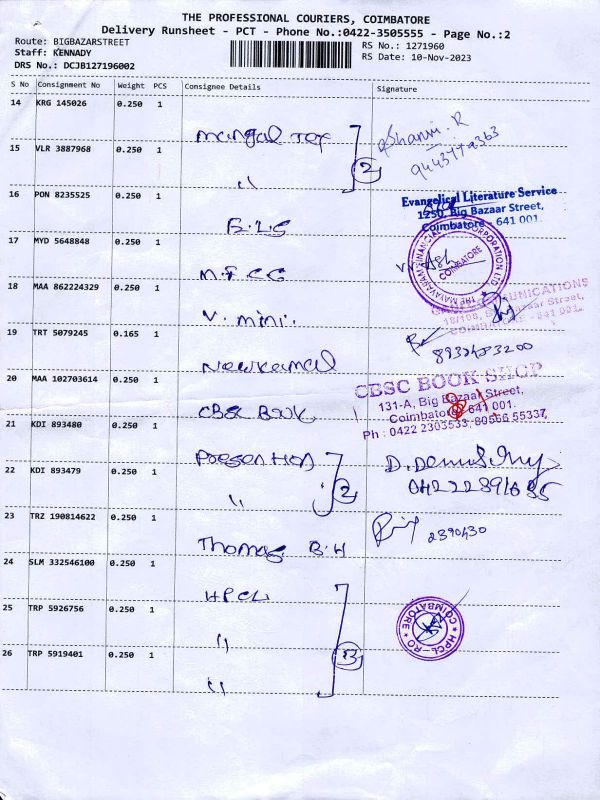 THE PROFESSIONAL COURIERS, COIMBATORE
Delivery Runsheet - PCT - Phone No.:0422-3505555 - Page No.:2
Route: BIGBAZARSTREET
Staff: KENNADY
DRS No.: DCJB127196002
RS No.: 1271960
RS Date: 10-Nov-2023
S No Consignment No Weight PCS Consignee Details Signature
14 KRG 145026 0.250 1 Mangal Tex
15 VLR 3887968 0.250 1 " 2
16 PON 8235525 0.250 1 E.L.S
Evangelical Literature Service
1250, Big Bazaar Street,
Coimbatore - 641 001.
17 MYD 5648848 0.250 1 M.F.C.C
COIMBATORE
18 MAA 862224329 0.250 1 V. mini.
19 TRT 5079245 0.165 1 New Kamal
8932483200
20 MAA 102703614 0.250 1 CBSC Book 1
CBSC BOOK SHOP
131-A, Big Bazaar Street,
Coimbatore 641 001.
Ph : 0422 2303533, 80566 55337,
21 KDI 893480 0.250 1
22 KDI 893479 0.250 1 " 2
23 TRZ 190814622 0.250 1 Thomas B.H
2390430
24 SLM 332546100 0.250 1 HPCL
25 TRP 5926756 0.250 1 "
HPCL-RO COIMBATORE
26 TRP 5919401 0.250 1 " 3